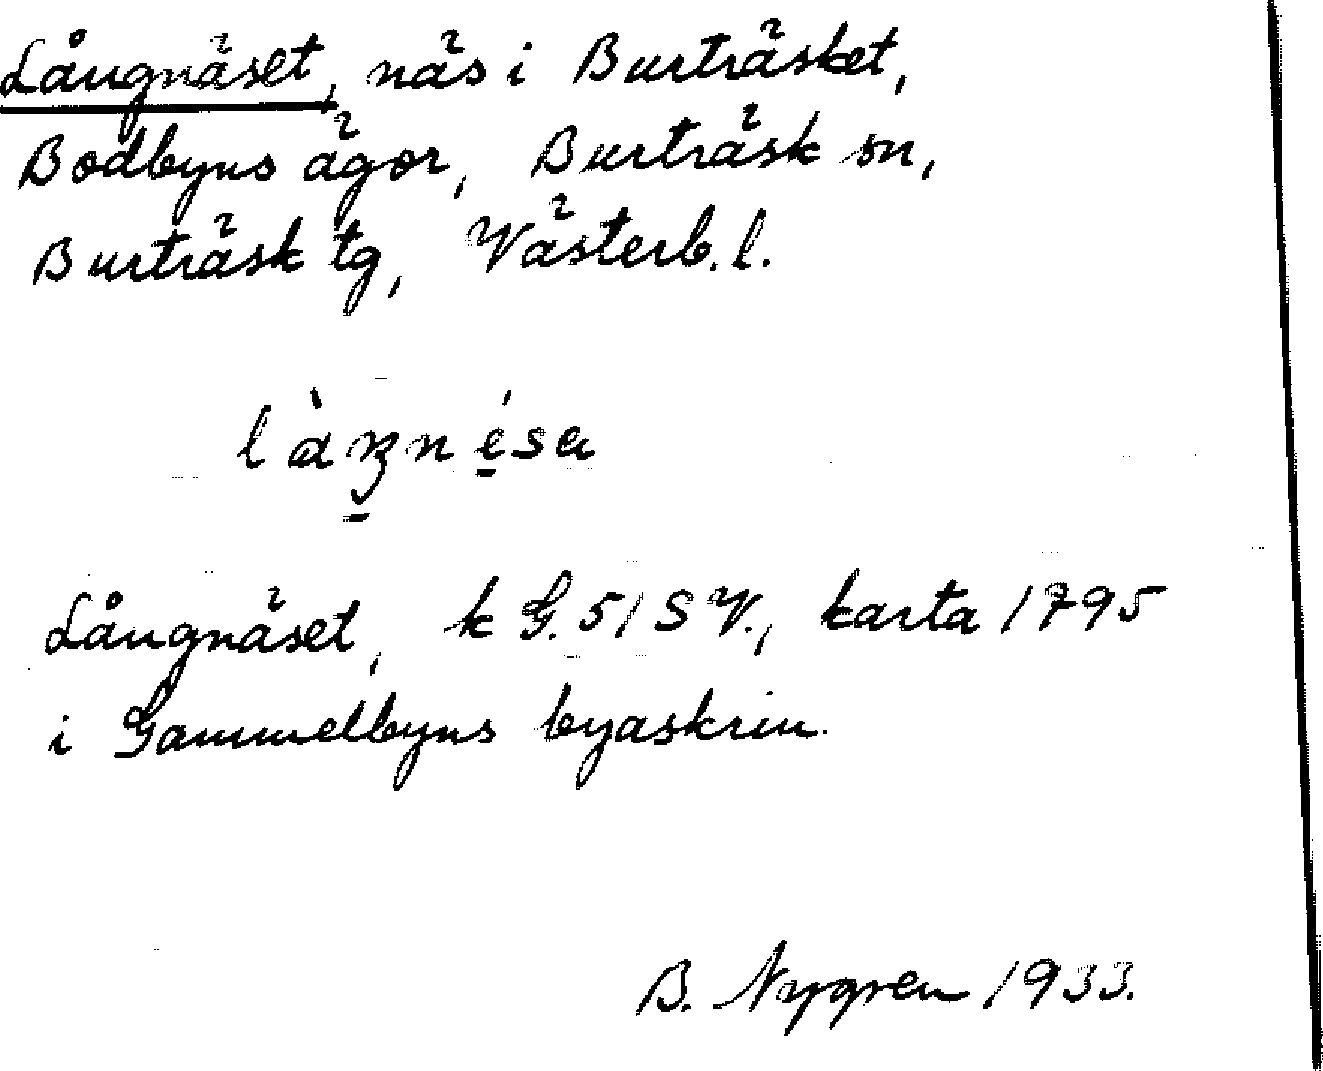 Långnäset, näs i Burträsket,
Bodbyns ägor, Burträsk sn,
Burträsk tg, Västerb. l.
Långnäset, k G. 51 S V., karta 1795
i Gammelbyns byaskrin.
B. Nygren 1933.